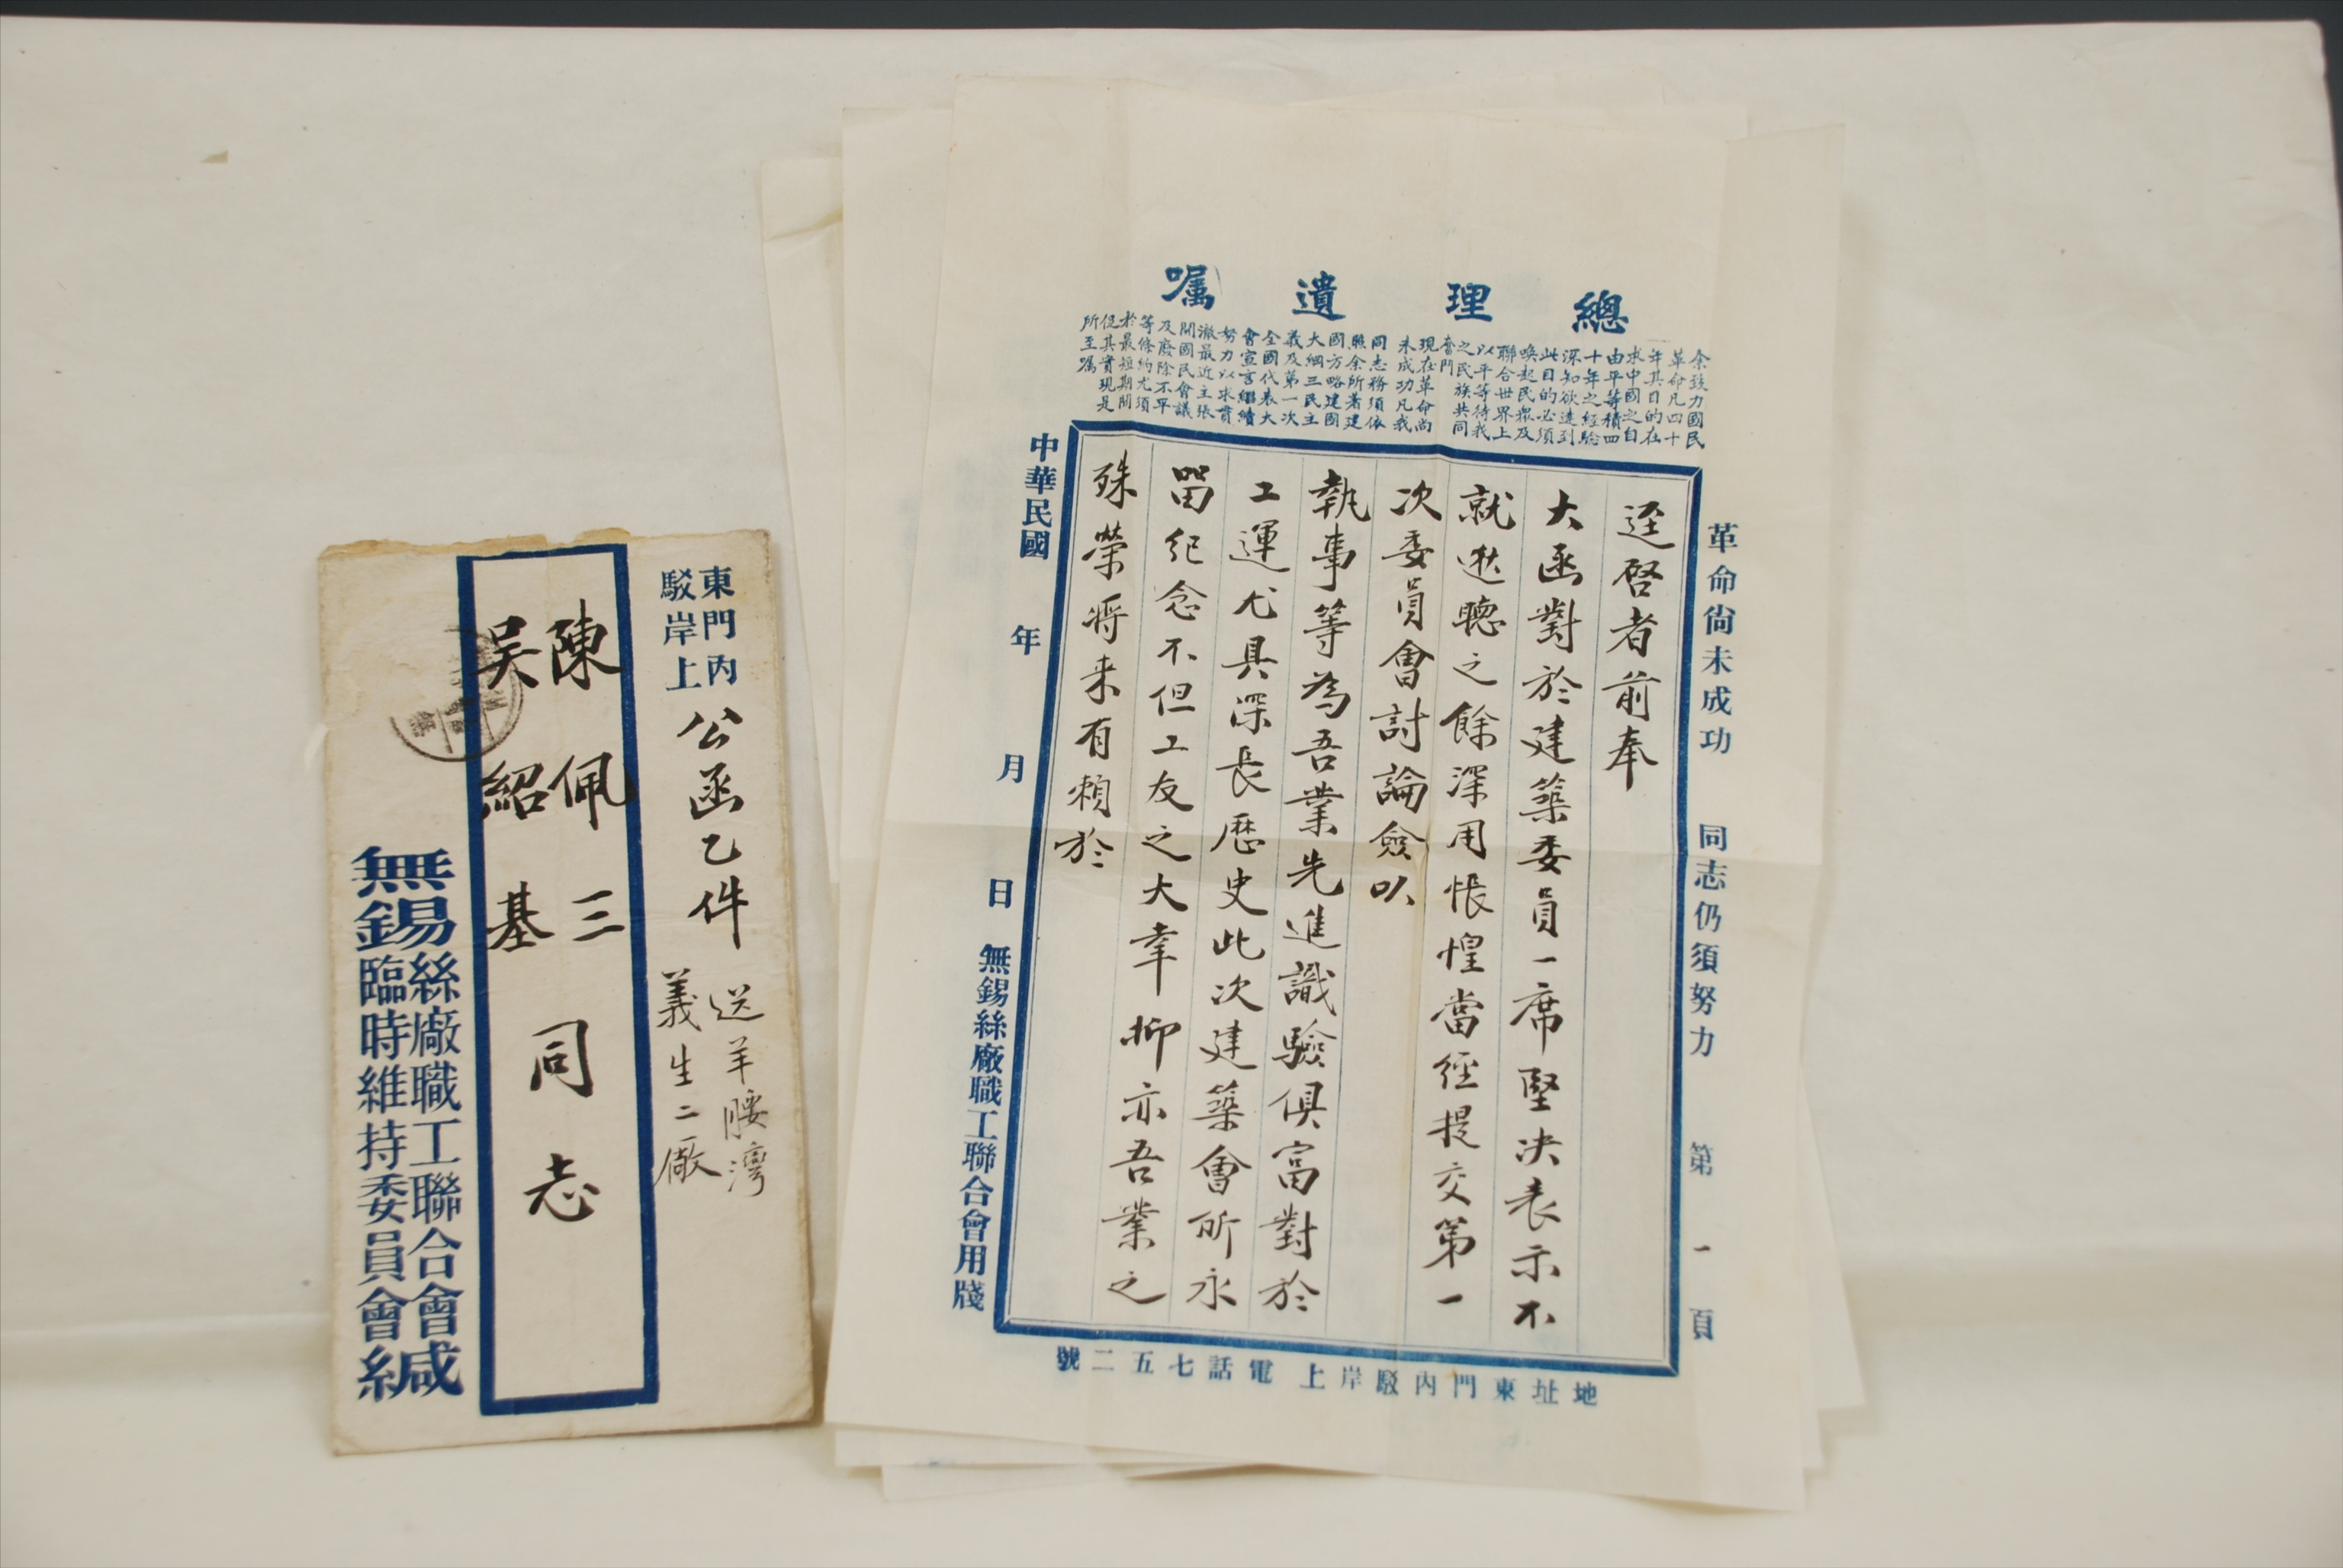 總理遺囑
余致力國民
革命凡四十
年其目的在
求中國之自
由平等積四
十年之經驗
深知欲達到
此目的必須
喚起民眾及
聯合世界上
以平等待我
之民族共同
奮鬥
現在革命尚
未成功凡我
同志務須依
照余所著建
國方略建國
大綱三民主
義及第一次
全國代表大
會宣言繼續
努力以求貫
澈最近主張
開國民會議
及廢除不平
等條約尤須
於最短期間
促其實現是
所至囑
革命尚未成功 同志仍須努力 第一頁
逕啓者前奉
大函對於建築委員一席堅決表示不
就逖聽之餘深用悵惶當經提交第一
次委員會討論僉以
執事等為吾業先進識驗俱富對於
工運尤具深長歷史此次建築會所永
留紀念不但工友之大幸抑亦吾業之
殊榮將来有賴於
中華民國 年 月 日 無錫絲廠職工聯合會用牋
地址東門內駁岸上 電話七五二號
東門內
駁岸上
公函乙件
送羊腰灣
義生二廠
陳佩三
吳紹基
同志
無錫絲廠職工聯合會
臨時維持委員會緘